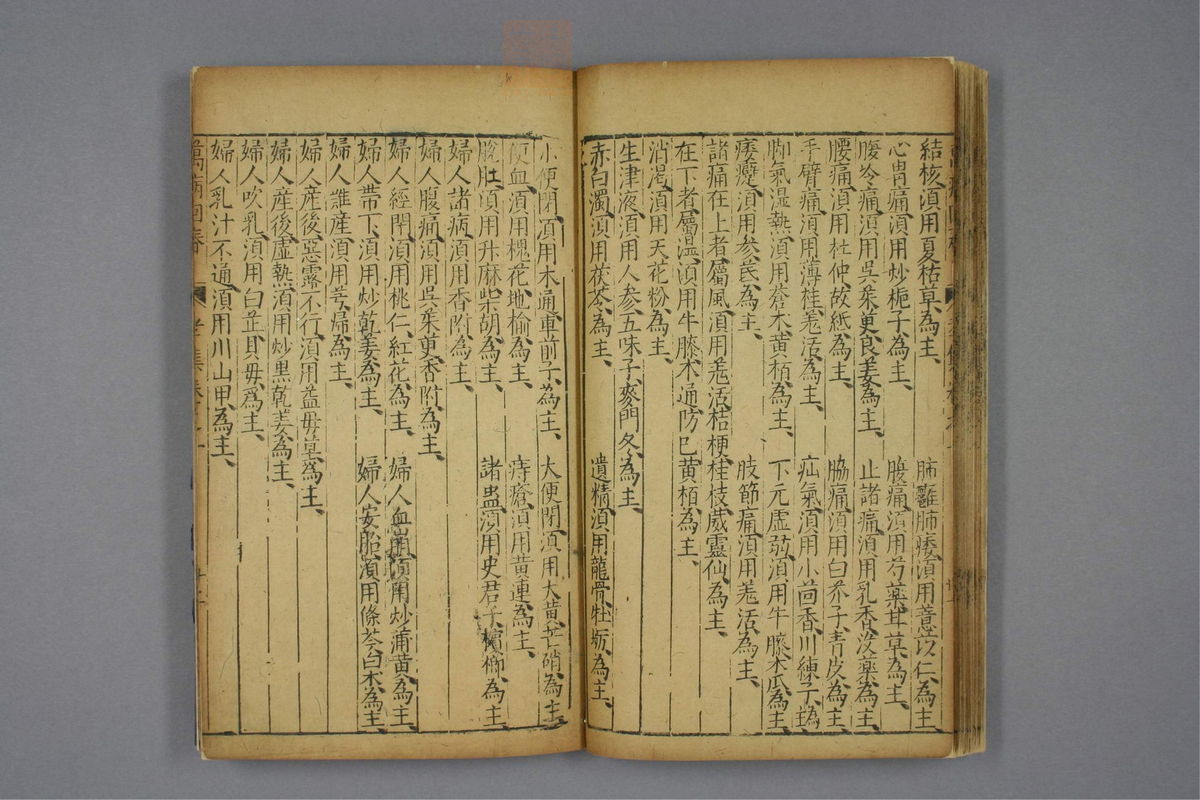 結核須用夏枯草為主、　肺癰肺痿須用薏苡仁為主、
心胃痛須用炒梔子為主、　腹痛須用芍藥甘草為主、
腹冷痛須用吳茱萸良姜為主、　止諸痛須用乳香没藥為主、
腰痛須用杜仲故紙為主、　脇痛須用白芥子青皮為主、
手臂痛須用薄桂羗活為主、　疝氣須用小茴香川練子為主、
脚氣濕熱須用蒼术黃栢為主、　下元虛弱須用牛膝木瓜為主、
痿躄須用参芪為主、　肢節痛須用羗活為主、
諸痛在上者屬風須用羗活桔梗桂枝葳靈仙為主、
在下者屬濕須用牛膝木通防已黃栢為主、
消渴須用天花粉為主、
生津液須用人参五味子麥門冬為主、
赤白濁須用茯苓為主、　遺精須用龍骨牡蛎為主、
小便閉須用木通車前子為主、　大便閉須用大黃芒硝為主、
便血須用槐花地榆為主、　痔瘡須用黃連為主、
脫肛須用升麻柴胡為主、　諸蟲須用史君子檳榔為主、
婦人諸病須用香附為主、
婦人腹痛須用吳茱萸香附為主、
婦人經閉須用桃仁紅花為主、　婦人血崩須用炒蒲黃為主、
婦人帶下須用炒乾姜為主、　婦人安胎須用條芩白术為主、
婦人難産須用芎歸為主、
婦人産後惡露不行須用益母草為主、
婦人産後虛熱須用炒黒乾姜為主、
婦人吹乳須用白芷貝母為主、
婦人乳汁不通須用川山甲為主、
萬病回春